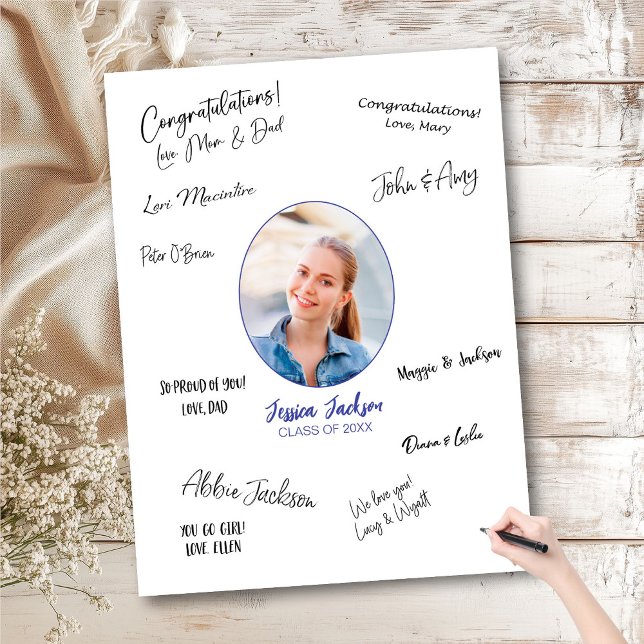 Congratulations!
Love, Mom & Dad
Congratulations!
Love, Mary
Lori Macintire
John & Amy
Peter O'Brien
SO PROUD OF YOU!
LOVE, DAD
Maggie & Jackson
Jessica Jackson
CLASS OF 20XX
Diana & Leslie
Abbie Jackson
We love you!
Lucy & Wyatt
YOU GO GIRL!
LOVE, ELLEN